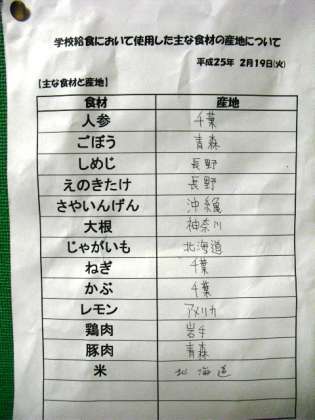 学校給食において使用した主な食材の産地について
平成25年 2月19日(火)
【主な食材と産地】
食材 産地
人参 千葉
ごぼう 青森
しめじ 長野
えのきたけ 長野
さやいんげん 沖縄
大根 神奈川
じゃがいも 北海道
ねぎ 千葉
かぶ 千葉
レモン アメリカ
鶏肉 岩手
豚肉 青森
米 北海道